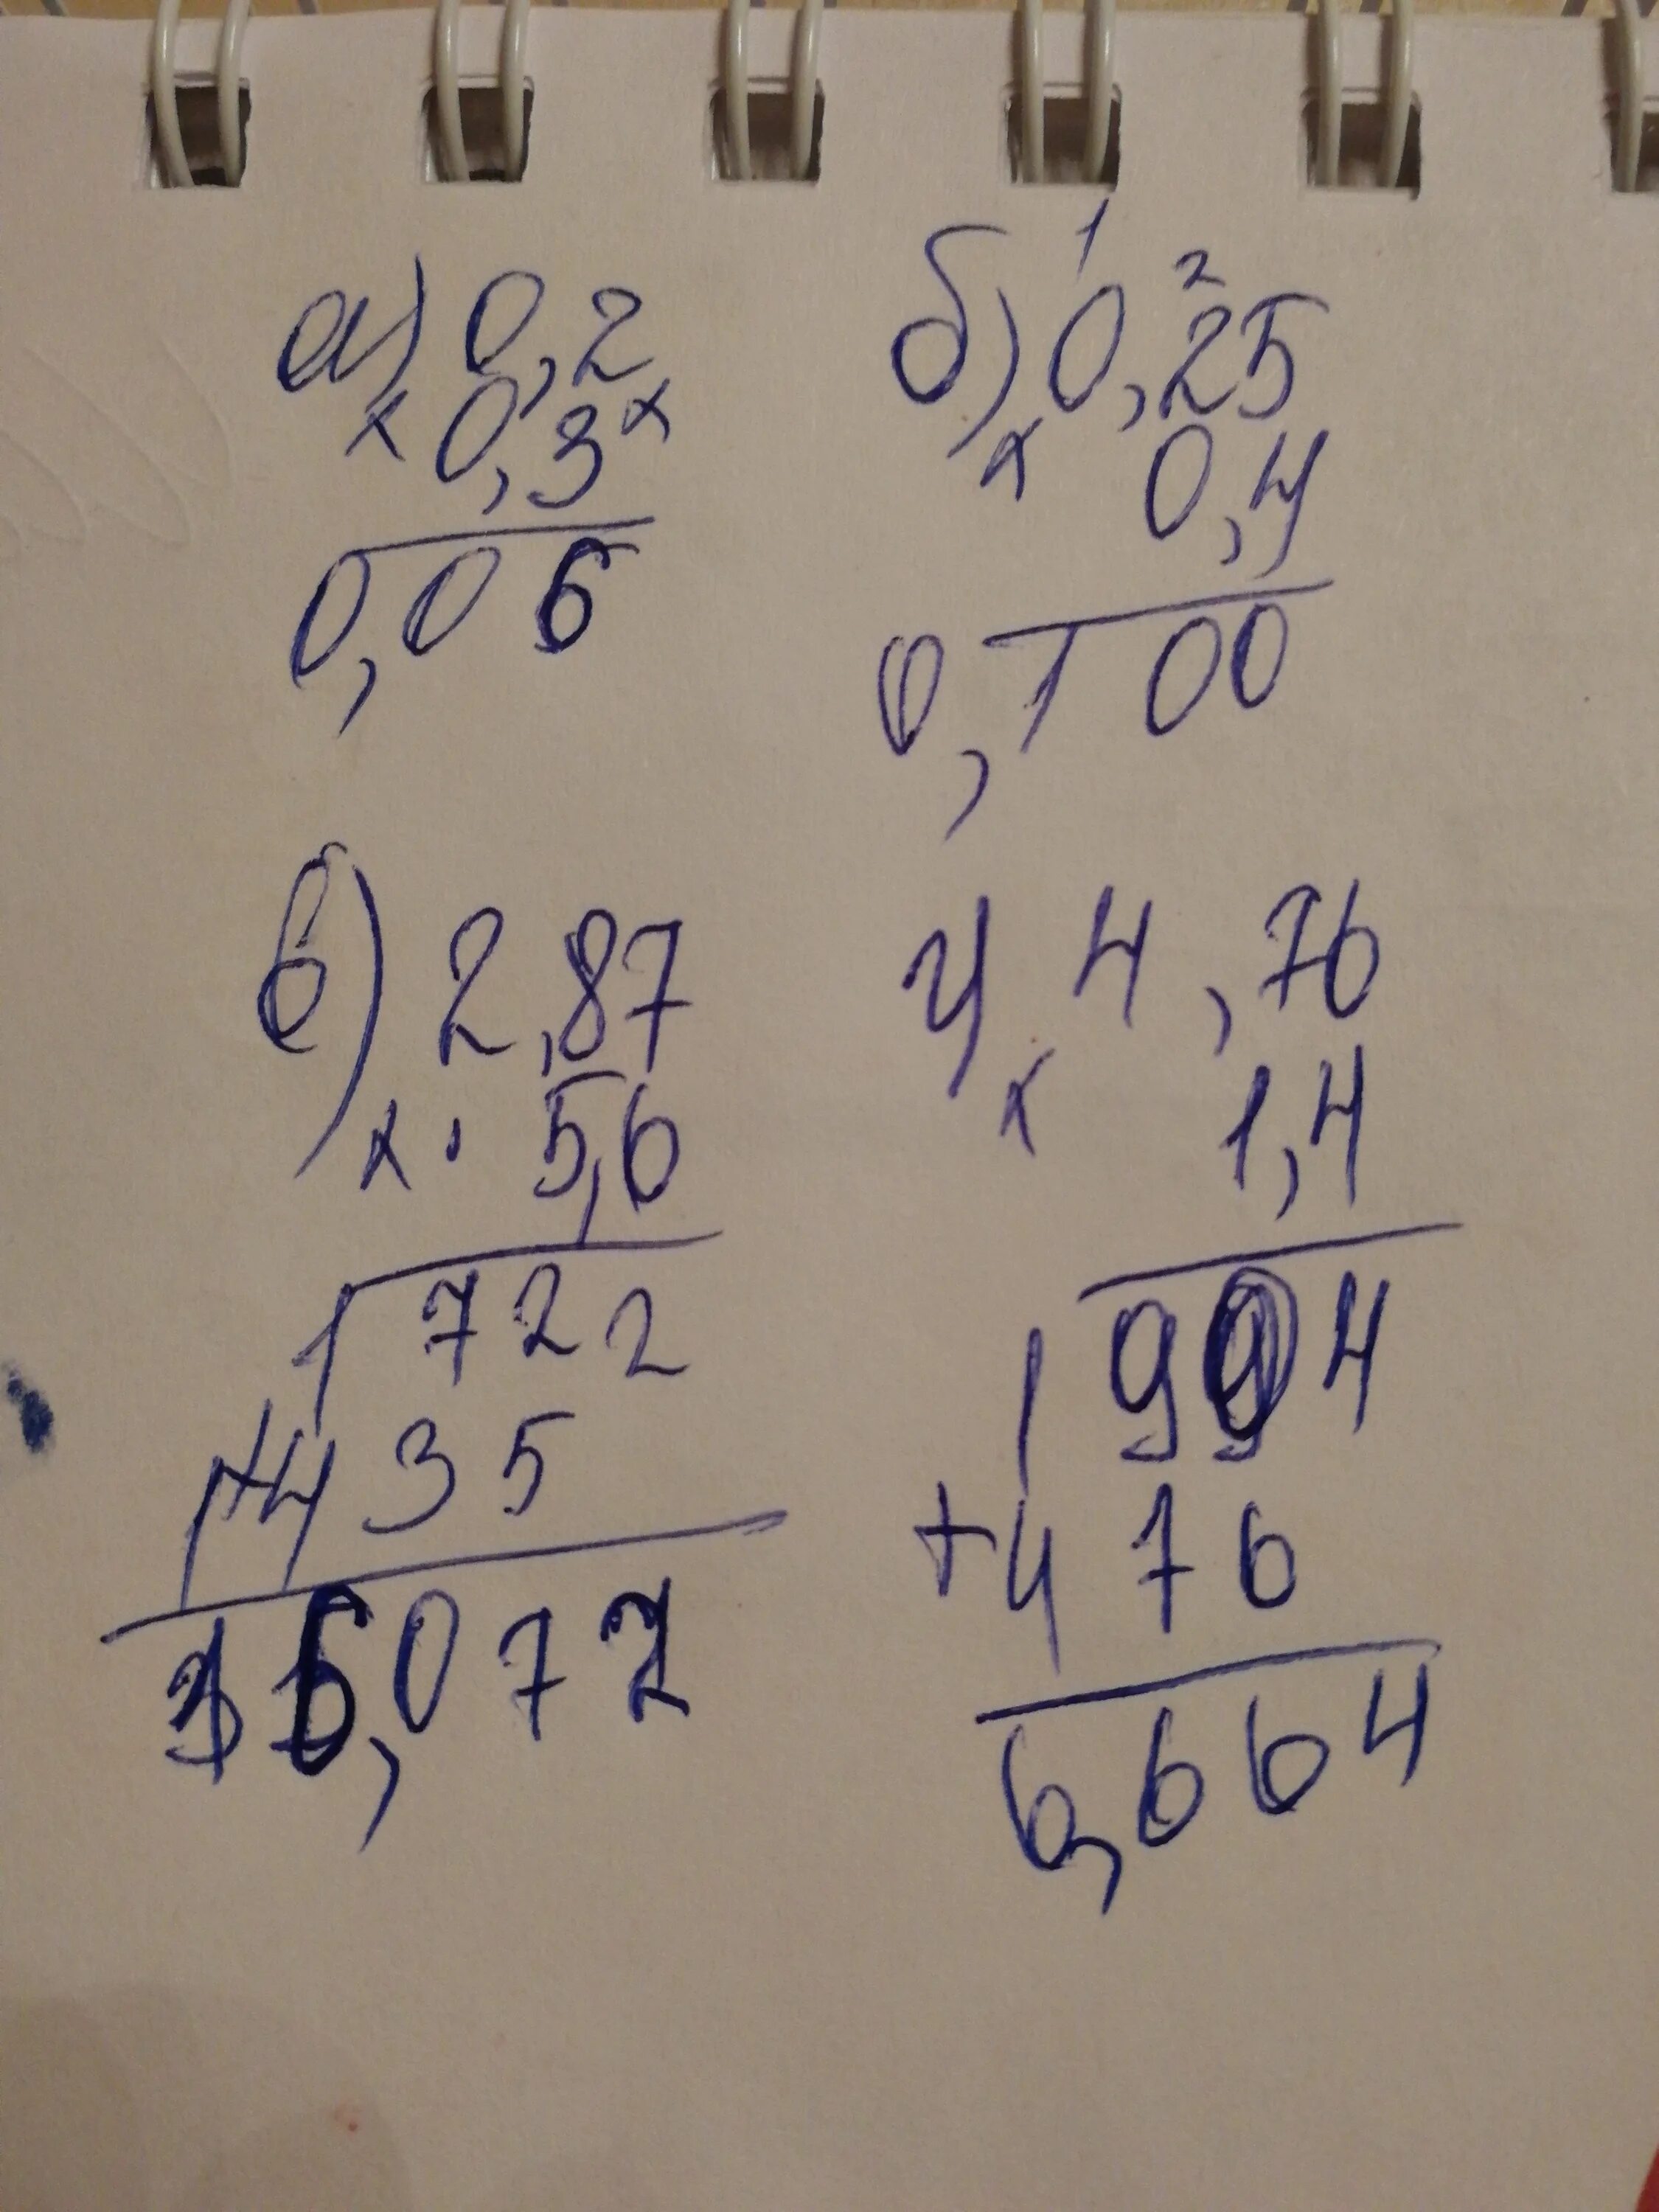 а) 0,2
× 0,3 ×
0,06
1
2
б) 0,25
× 0,4
0,100
в) 2,87
× · 5,6
1722
+1435
16,072
г) 4,76
× 1,4
1904
+476
6,664